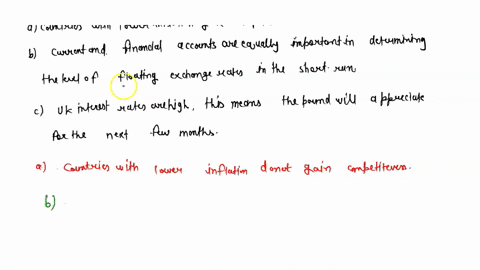 a) Countries with lower
b) Current and financial accounts are equally important in determining
the level of floating exchange rates in the short run
c) UK interest rates are high, this means the pound will appreciate
for the next few months.
a) Countries with lower inflatin donot gain competitiveness.
b)